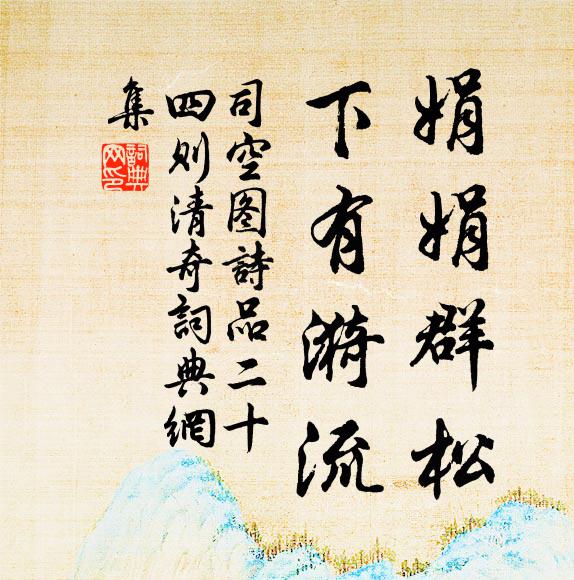 娟娟群松
下有漪流
司空图詩品二十
四则清奇詞典網
集
詞典
网印